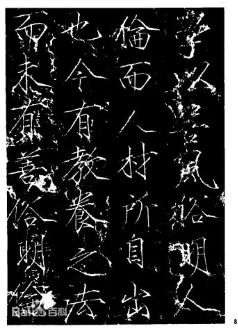 学以善風俗明人
倫而人材所自出
也今有教養之法
而未有善俗明倫
Bai百科
8